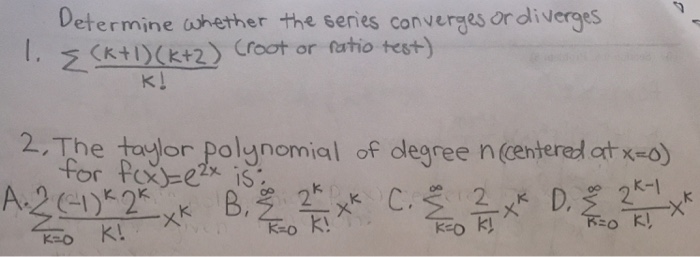 Determine whether the series converges or diverges
1. Σ (K+1)(K+2) / K! (root or ratio test)
2. The taylor polynomial of degree n (centered at x=0)
for f(x)=e^2x is:
A. Σ K=0 (-1)^K 2^K / K! x^K B. Σ K=0 ∞ 2^K / K! x^K C. Σ K=0 ∞ 2 / K! x^K D. Σ K=0 ∞ 2^K-1 / K! x^K